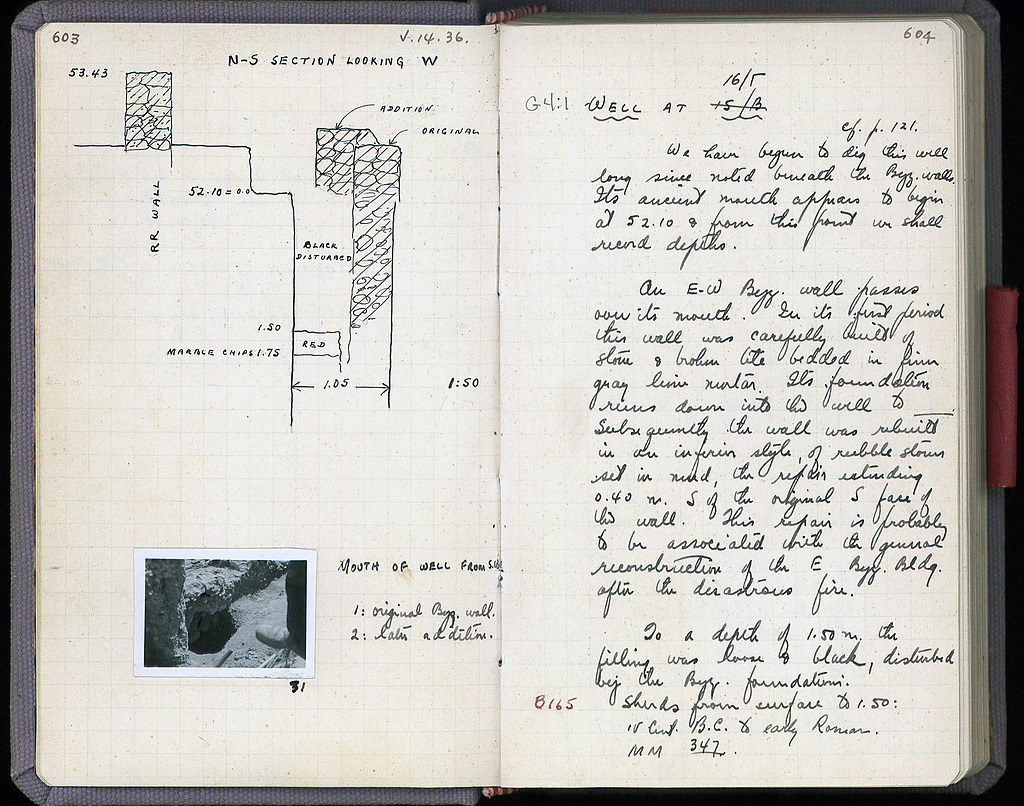 603
V.14.36.
N-S SECTION LOOKING W
53.43
ADDITION
ORIGINAL
RR WALL
52.10 = 0.0
BLACK
DISTURBED
1.50
RED
MARBLE CHIPS 1.75
1.05
1:50
MOUTH OF WELL FROM S.W.
1: original Byz. wall.
2: later addition.
31
604
16/Γ
G4:1 WELL AT 15/B
cf. p. 121.
We have begun to dig this well
long since noted beneath the Byz. walls.
Its ancient mouth appears to begin
at 52.10 & from this point we shall
record depths.
An E-W Byz. wall passes
over its mouth. In its first period
this wall was carefully built of
stone & broken tile bedded in firm
gray lime mortar. Its foundation
runs down into the well to ___.
Subsequently the wall was rebuilt
in an inferior style, of rubble stones
set in mud, the repair extending
0.40 m. S of the original S face of
the wall. This repair is probably
to be associated with the general
reconstruction of the E Byz. Bldg.
after the disastrous fire.
To a depth of 1.50 m. the
filling was loose & black, disturbed
by the Byz. foundations.
B165 Sherds from surface to 1.50:
IV Cent. B.C. to early Roman.
MM 347.